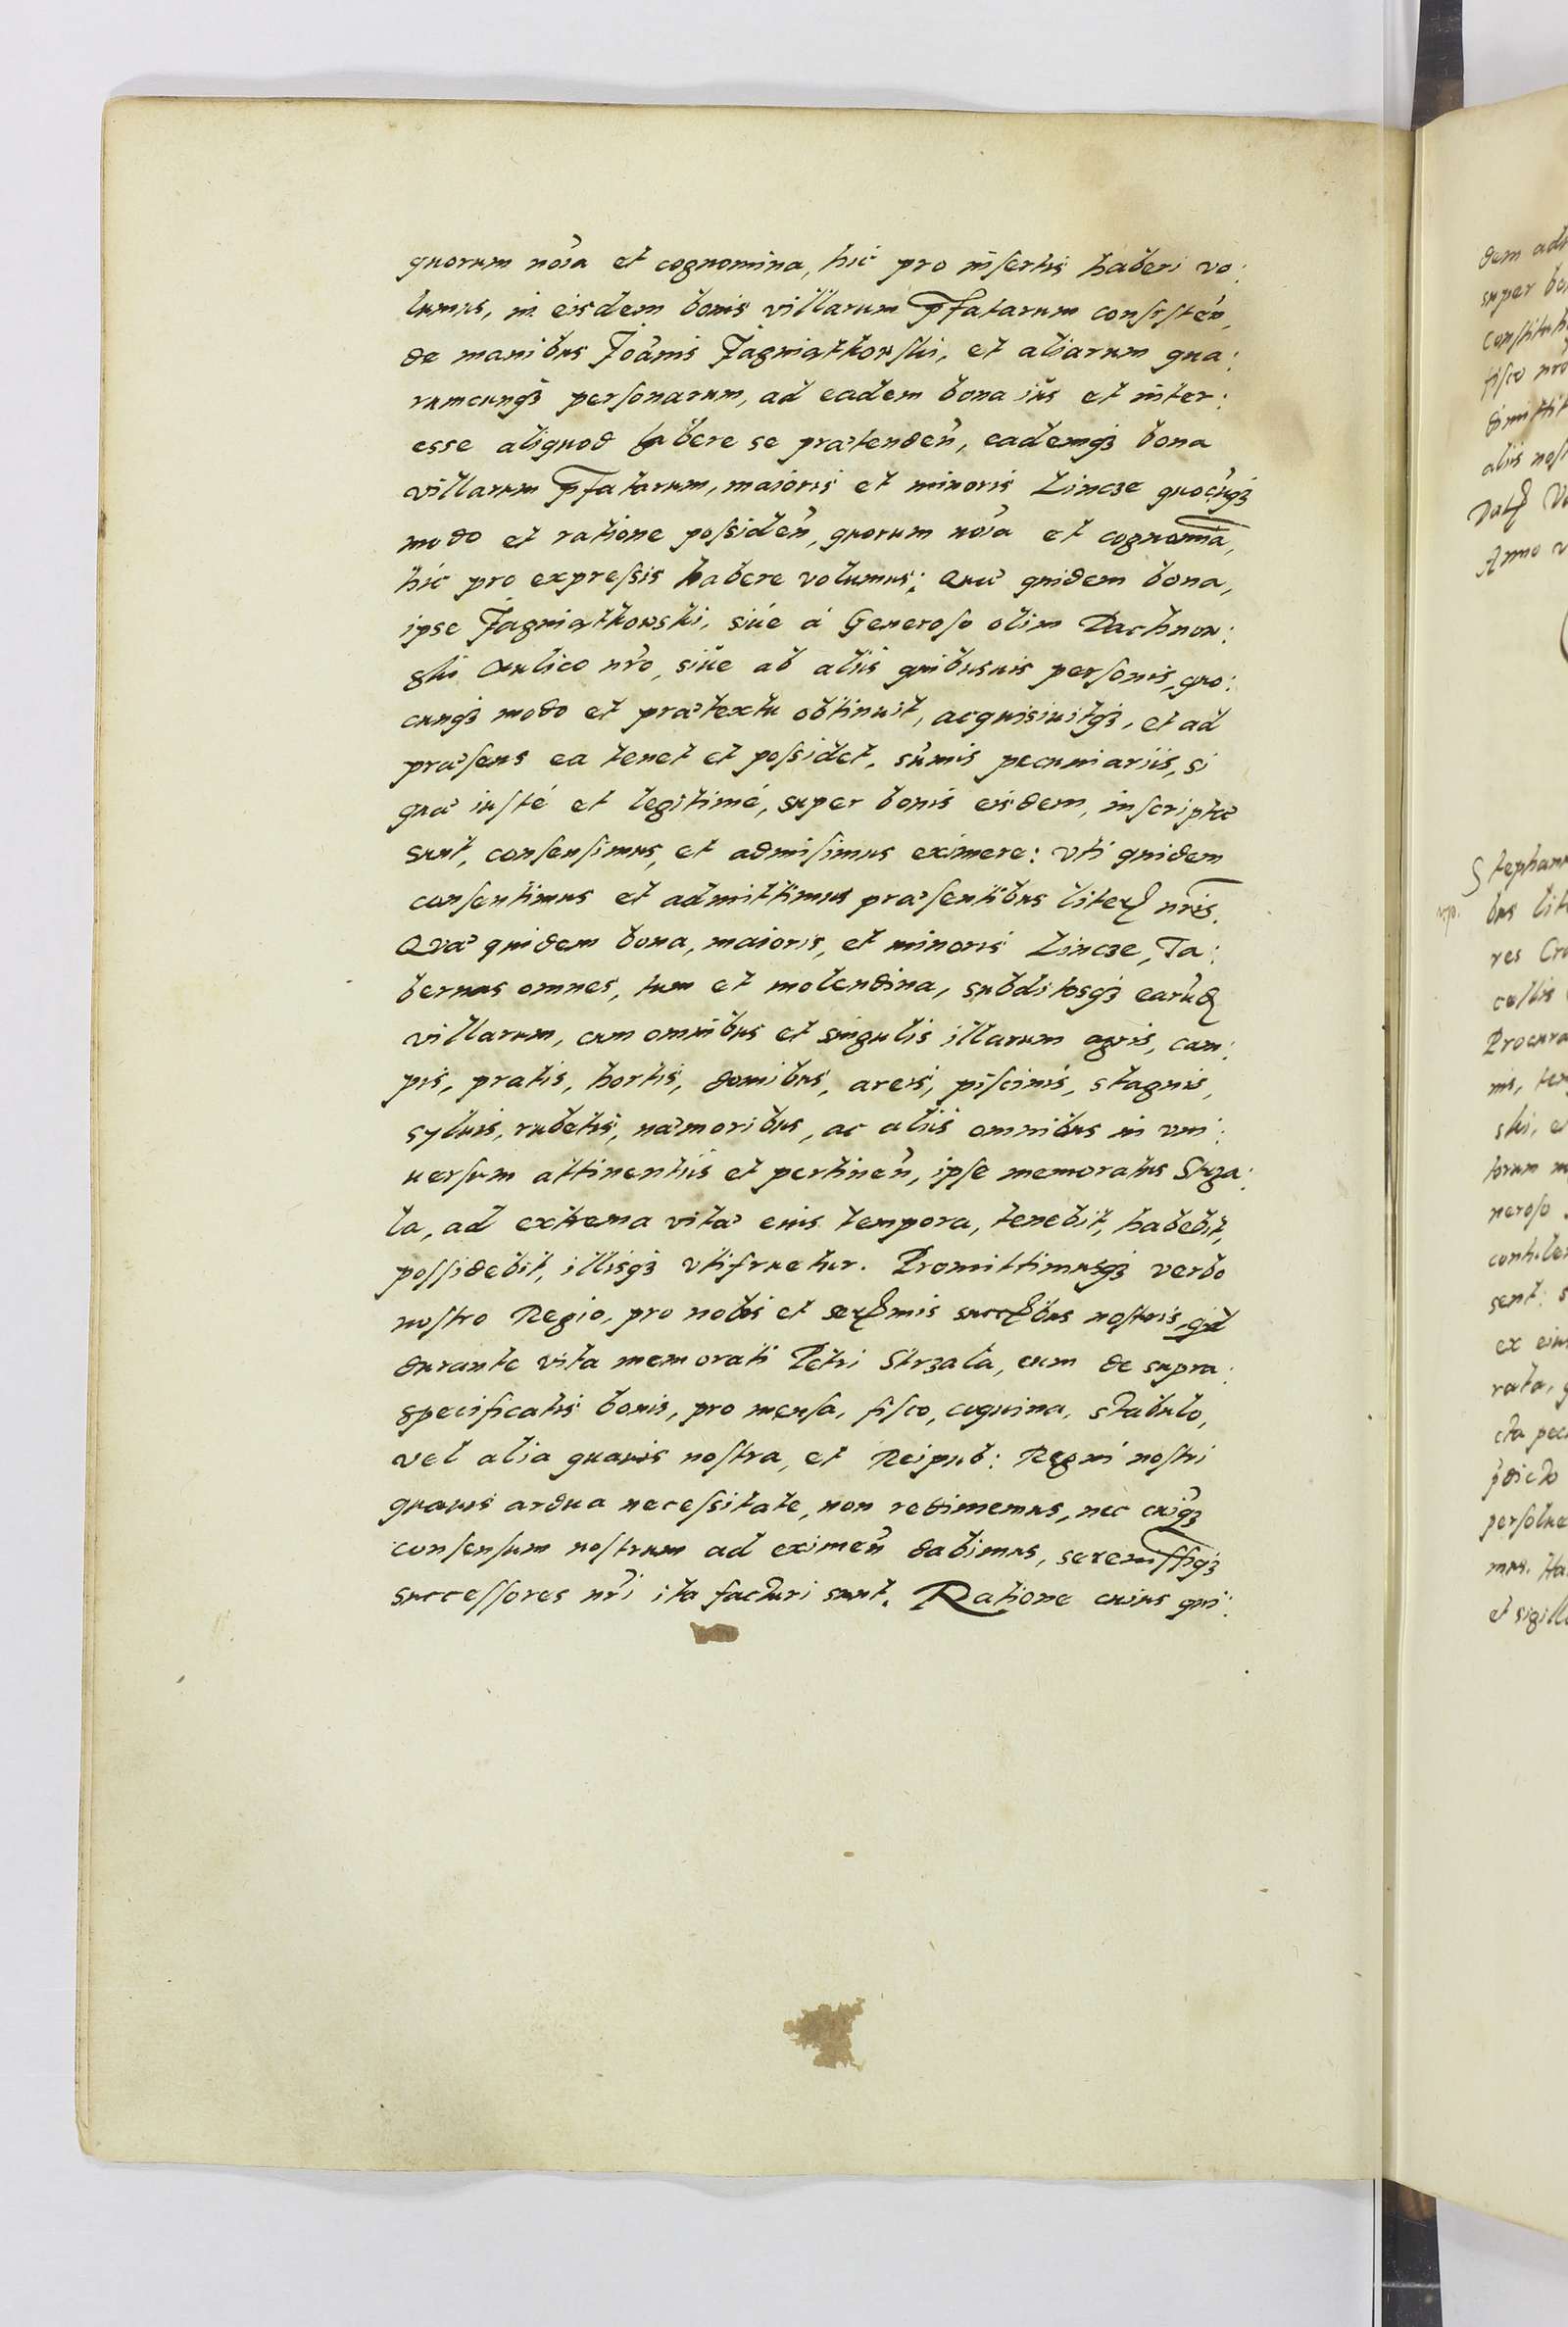 quorum nõia et cognomina, hic pro insertis haberi vo:
lumus, in eisdem bonis villarum p̃fatarum consisteñ,
de manibus Joãnis Jagniątkowski, et aliarum qua:
rumcunqꝫ personarum, ad eadem bona ius et inter:
esse aliquod habere se prætendeñ, eademqꝫ bona
villarum p̃fatarum, maioris et minoris Lincze quocũqꝫ
modo et ratione possideñ, quorum nõia et cognom̃a,
hic pro expressis habere volumus; Quæ quidem bona,
ipse Jagniątkowski, siue à Generoso olim Pachnow:
ski Aulico nr̃o, siue ab aliis quibusuis personis, quo:
cunqꝫ modo et prætextu obtinuit, acquisiuitqꝫ, et ad
præsens ea tenet et possidet, sũmis pecuniariis, si
quæ iustè et legitimè, super bonis eisdem, inscriptæ
sunt, consensimus, et admisimus eximere: vti quidem
consentimus et admittimus præsentibus literꝭ nr̃is.
Quæ quidem bona, maioris, et minoris Lincze, Ta:
bernas omnes, tum et molendina, subditosqꝫ earũdꝭ
villarum, cum omnibus et singulis illarum agris, cam:
pis, pratis, hortis, domibus, areis, piscinis, stagnis,
syluis, rubetis, næmoribus, ac aliis omnibus in vni:
uersum attinentiis et pertineñ, ipse memoratus Strza:
la, ad extrema vitæ eius tempora, tenebit, habebit,
possidebit, illisqꝫ vtifruetur. Promittimusqꝫ verbo
nostro Regio, pro nobis et serꝭmis succꝭbus nostris, qd
durante vita memorati Petri Strzala, eum de supra:
specificatis bonis, pro mensa, fisco, coquina, stabulo,
vel alia quauis nostra, et Reipub: Regni nostri
quauis ardua necessitate, non redimemus, nec cuiq̃ꝫ
consensum nostrum ad eximeñ dabimus, serenissiqꝫ
successores nr̃i ita facturi sunt. Ratione cuius qui:
dem
super
aliis
Anno
res
Procura
neroso
ex
persolue
et sigill